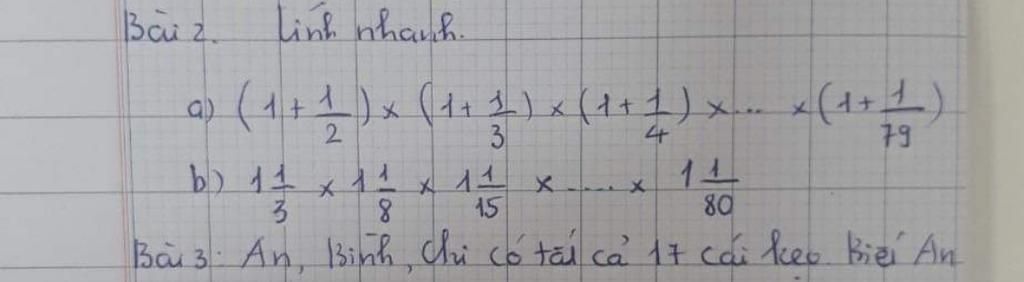 Bài 2. Tính nhanh.
a) (1 + 1/2) × (1 + 1/3) × (1 + 1/4) × ... × (1 + 1/79)
b) 1 1/3 × 1 1/8 × 1 1/15 × ..... × 1 1/80
Bài 3: An, Bình, Chi có tất cả 17 cái kẹo. Biết An